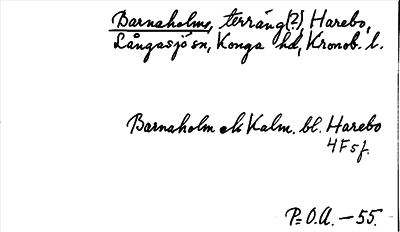 Barnaholm, terräng(?), Harebo,
Långasjö sn, Konga hd, Kronob. l.
Barnaholm ek Kalm. bl. Harebo
4F sf.
P=O.A. — 55.